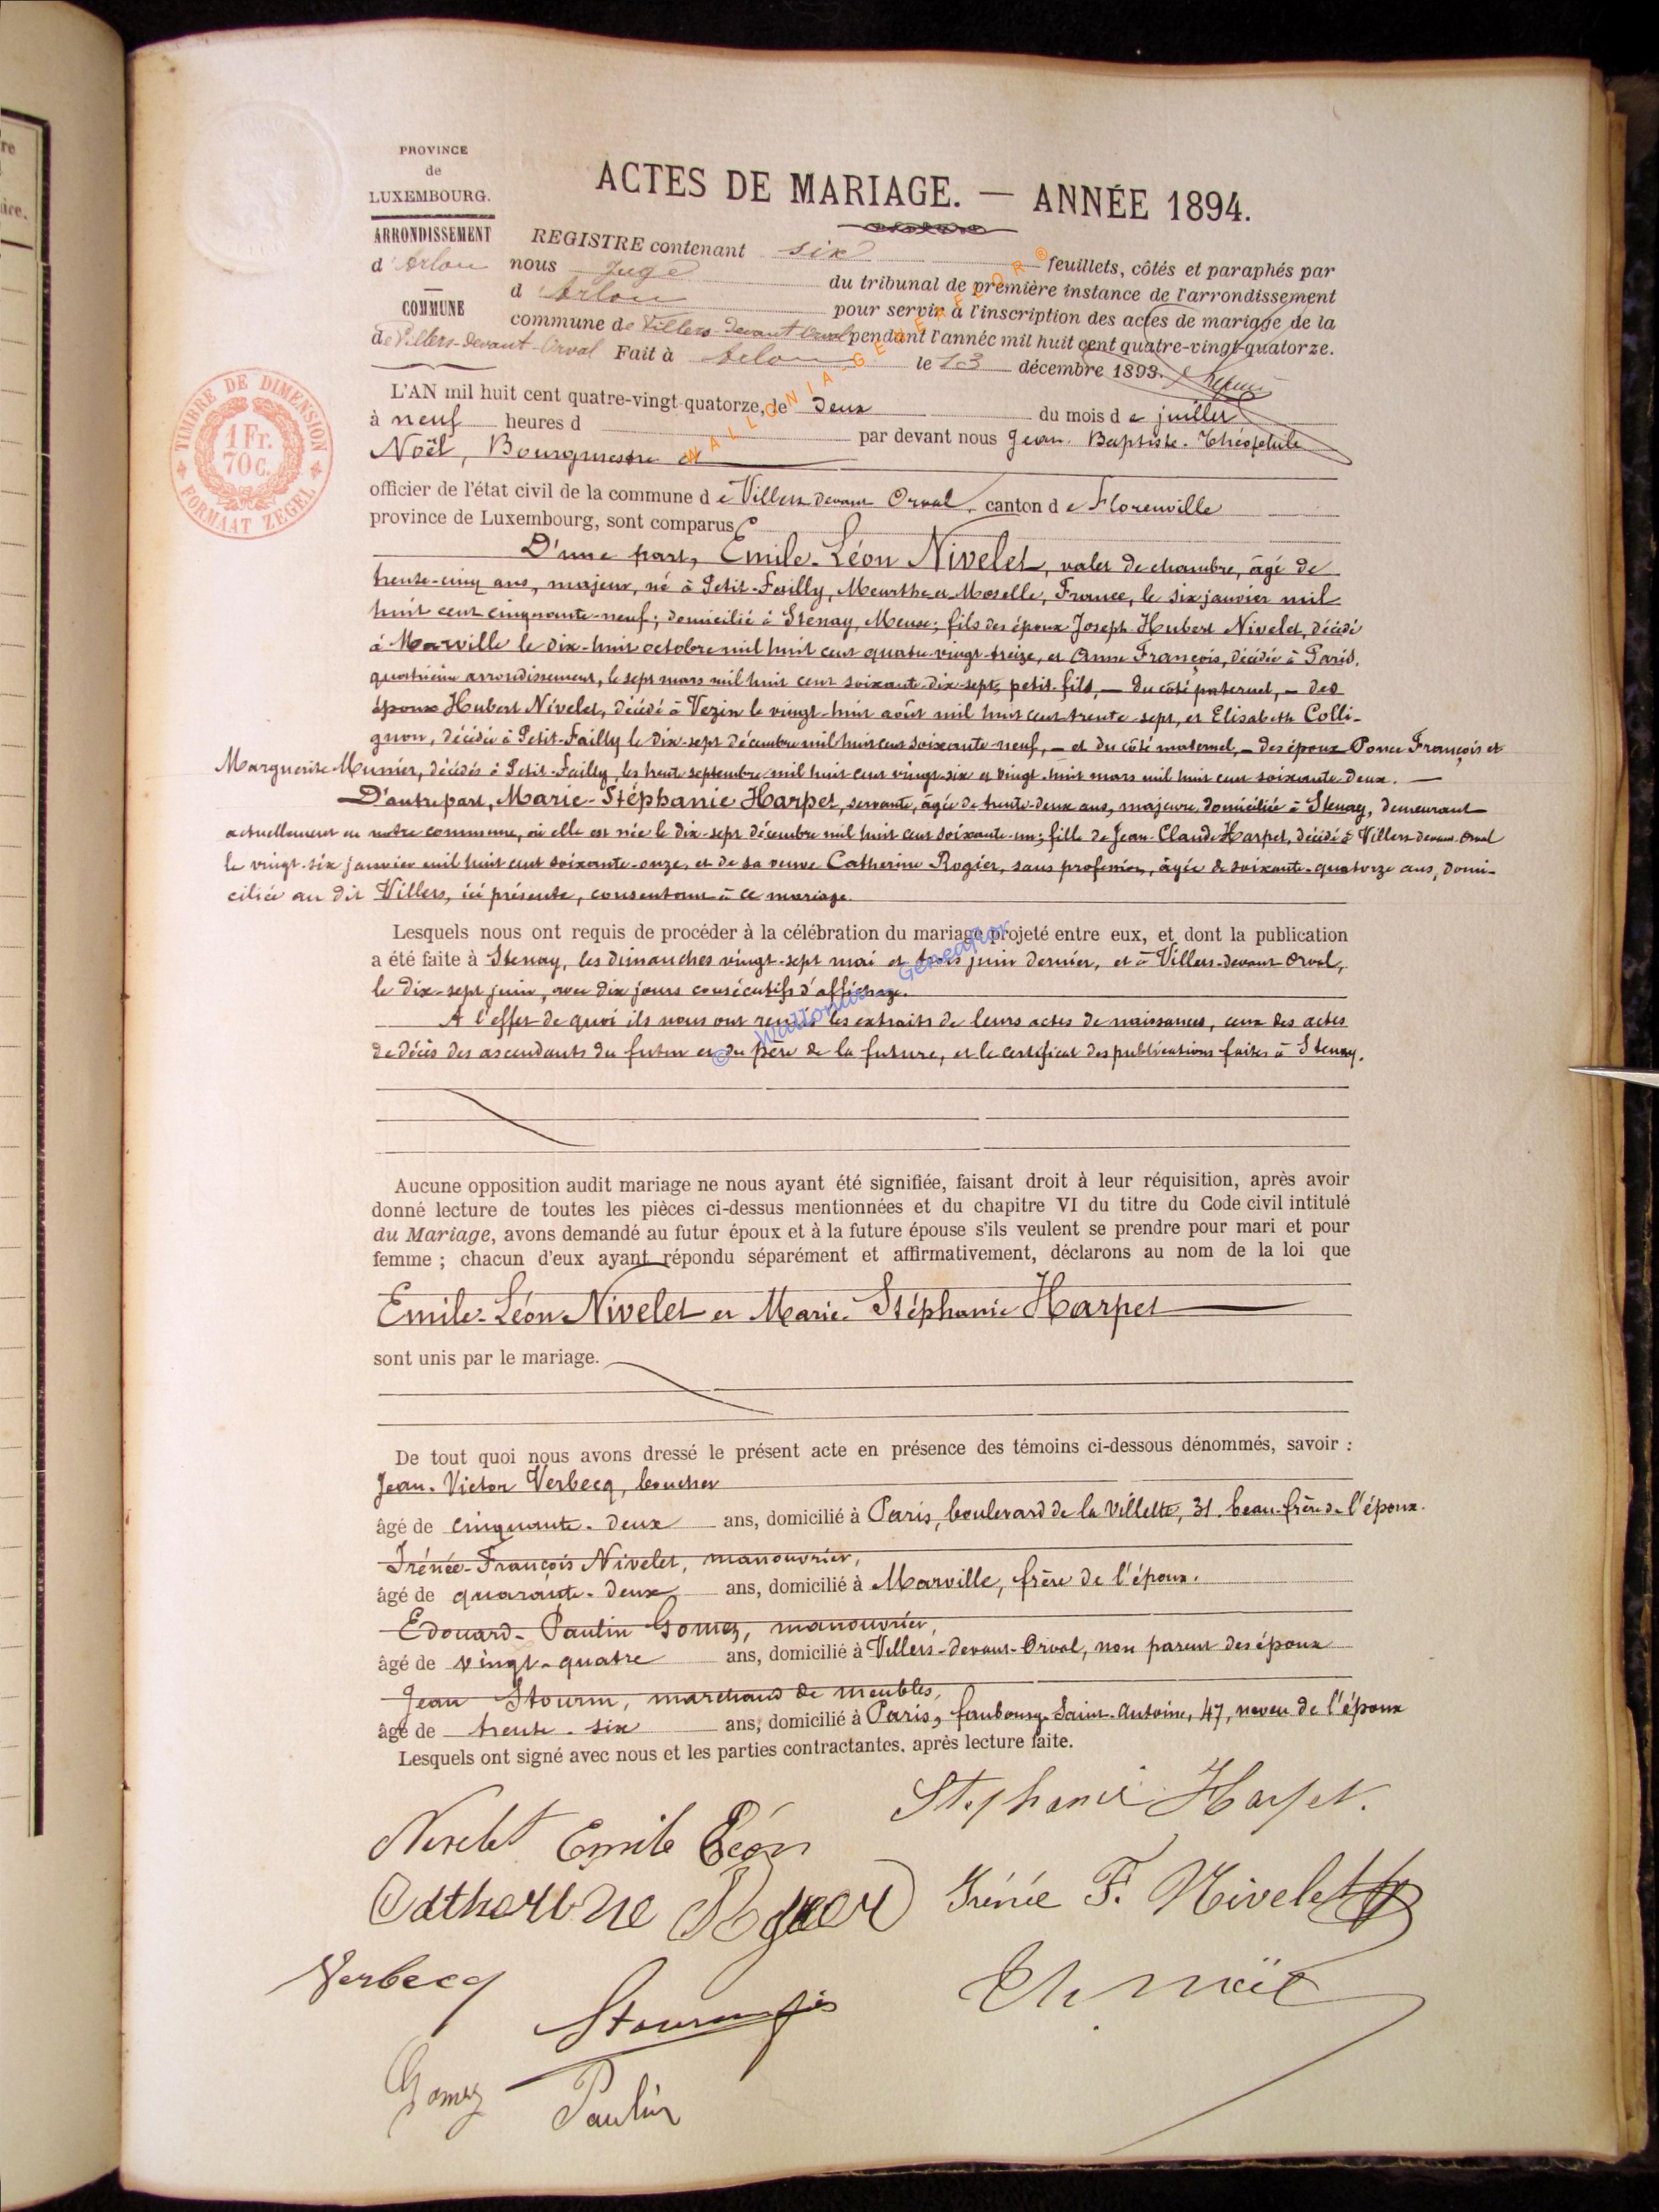 PROVINCE
de
LUXEMBOURG.
ARRONDISSEMENT
d'Arlon
COMMUNE
de Villers-devant-Orval
ACTES DE MARIAGE. — ANNÉE 1894.
REGISTRE contenant six feuillets, côtés et paraphés par
nous Juge du tribunal de première instance de l'arrondissement
d'Arlon pour servir à l'inscription des actes de mariage de la
commune de Villers-devant-Orval pendant l'année mil huit cent quatre-vingt-quatorze.
Fait à Arlon le 13 décembre 1893.
TIMBRE DE DIMENSION
1 Fr.
70 c.
FORMAAT ZEGEL
L'AN mil huit cent quatre-vingt-quatorze, le deux du mois de juillet
à neuf heures d par devant nous Jean-Baptiste-Théophile
Noël, Bourgmestre et
officier de l'état civil de la commune de Villers devant Orval, canton de Florenville
province de Luxembourg, sont comparus
D'une part, Emile-Léon Nivelet, valet de chambre, âgé de
trente-cinq ans, majeur, né à Petit-Failly, Meurthe et Moselle, France, le six janvier mil
huit cent cinquante-neuf; domicilié à Stenay, Meuse; fils des époux Joseph-Hubert Nivelet, décédé
à Marville le dix-huit octobre mil huit cent quatre-vingt-treize, et Anne François, décédée à Paris,
quatrième arrondissement, le sept mars mil huit cent soixante-dix-sept, petit-fils, — du côté paternel, — des
époux Hubert Nivelet, décédé à Vezin le vingt-huit août mil huit cent trente-sept, et Elisabeth Colli-
gnon, décédée à Petit-Failly le dix-sept décembre mil huit cent soixante-neuf, — et du côté maternel, — des époux Ponce François et
Marguerite Munier, décédés à Petit-Failly, les trente septembre mil huit cent vingt-six et vingt-huit mars mil huit cent soixante-deux. —
D'autre part, Marie-Stéphanie Harpet, servante, âgée de trente-deux ans, majeure, domiciliée à Stenay, demeurant
actuellement en notre commune, où elle est née le dix-sept décembre mil huit cent soixante-un; fille de Jean-Claude Harpet, décédé à Villers devant Orval
le vingt-six janvier mil huit cent soixante-onze, et de sa veuve Catherine Rogier, sans profession, âgée de soixante-quatorze ans, domi-
ciliée au dit Villers, ici présente, consentant à ce mariage.
Lesquels nous ont requis de procéder à la célébration du mariage projeté entre eux, et dont la publication
a été faite à Stenay, les dimanches vingt-sept mai et trois juin dernier, et à Villers-devant-Orval,
le dix-sept juin, avec dix jours consécutifs d'affichage.
A l'effet de quoi ils nous ont remis les extraits de leurs actes de naissances, ceux des actes
de décès des ascendants du futur et du père de la future, et le certificat des publications faites à Stenay.
Aucune opposition audit mariage ne nous ayant été signifiée, faisant droit à leur réquisition, après avoir
donné lecture de toutes les pièces ci-dessus mentionnées et du chapitre VI du titre du Code civil intitulé
du Mariage, avons demandé au futur époux et à la future épouse s'ils veulent se prendre pour mari et pour
femme ; chacun d'eux ayant répondu séparément et affirmativement, déclarons au nom de la loi que
Emile-Léon Nivelet et Marie-Stéphanie Harpet
sont unis par le mariage.
De tout quoi nous avons dressé le présent acte en présence des témoins ci-dessous dénommés, savoir :
Jean-Victor Verbecq, boucher
âgé de cinquante-deux ans, domicilié à Paris, boulevard de la Villette, 31. beau-frère de l'époux.
Irénée-François Nivelet, manouvrier,
âgé de quarante-deux ans, domicilié à Marville, frère de l'époux.
Edouard-Paulin Gomez, manouvrier,
âgé de vingt-quatre ans, domicilié à Villers-devant-Orval, non parent des époux
Jean Stourm, marchand de meubles,
âgé de trente-six ans, domicilié à Paris, faubourg Saint-Antoine, 47, neveu de l'époux
Lesquels ont signé avec nous et les parties contractantes, après lecture faite.
Stephanie Harpet.
Nivelet Emile Léon
Catherine Rogier
Irénée F. Nivelet
Verbecq
Th Noël
Gomez Paulin
WALLONIA-GENEAFLOR ®
© Wallonia Geneaflor